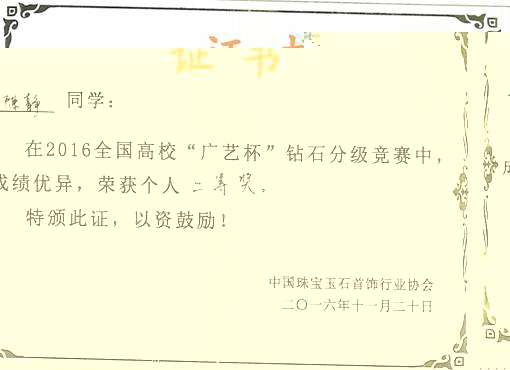 证书
陈静 同学：
在2016全国高校“广艺杯”钻石分级竞赛中，
成绩优异，荣获个人 二等奖。
特颁此证，以资鼓励！
中国珠宝玉石首饰行业协会
二〇一六年十一月二十日